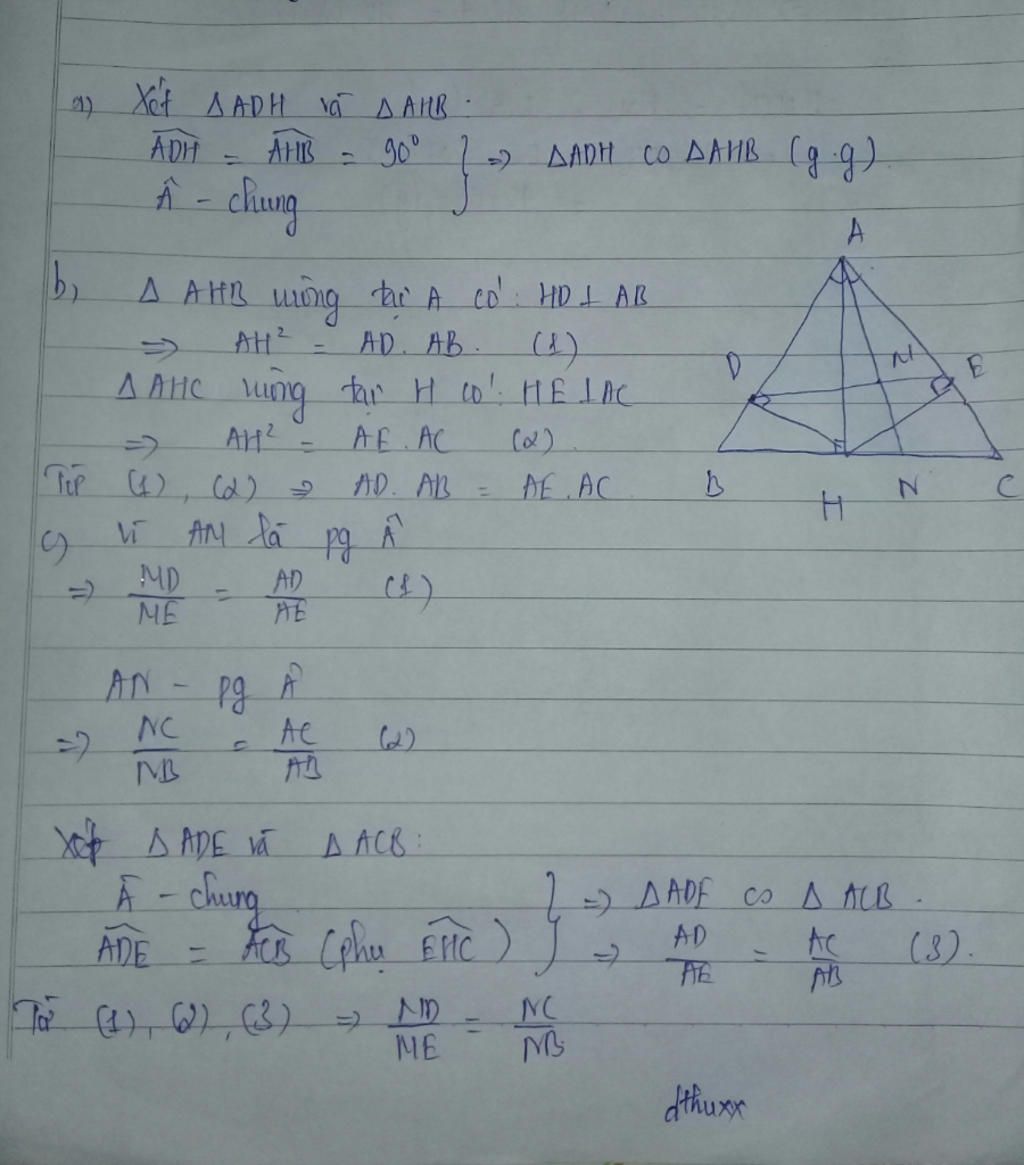 a) Xét ΔADH và ΔAHB:
ADH = AHB = 90° } => ΔADH ∽ ΔAHB (g.g)
Â - chung
b, Δ AHB vuông tại A có: HD⊥AB
=> AH² = AD. AB. (1)
ΔAHC vuông tại H có: HE⊥AC
=> AH² = AE.AC (2)
Từ (1), (2) => AD. AB = AE.AC
c) Vì AM là pg Â
=> MD/ME = AD/AE (1)
AN - pg Â
=> NC/NB = AC/AB (2)
Xét ΔADE và ΔACB:
Â - chung } => ΔADE ∽ ΔACB.
ADE = ACB (phụ EHC) => AD/AE = AC/AB (3).
Từ (1), (2), (3) => MD/ME = NC/NB
dthuxx
A
D
M
E
B
H
N
C